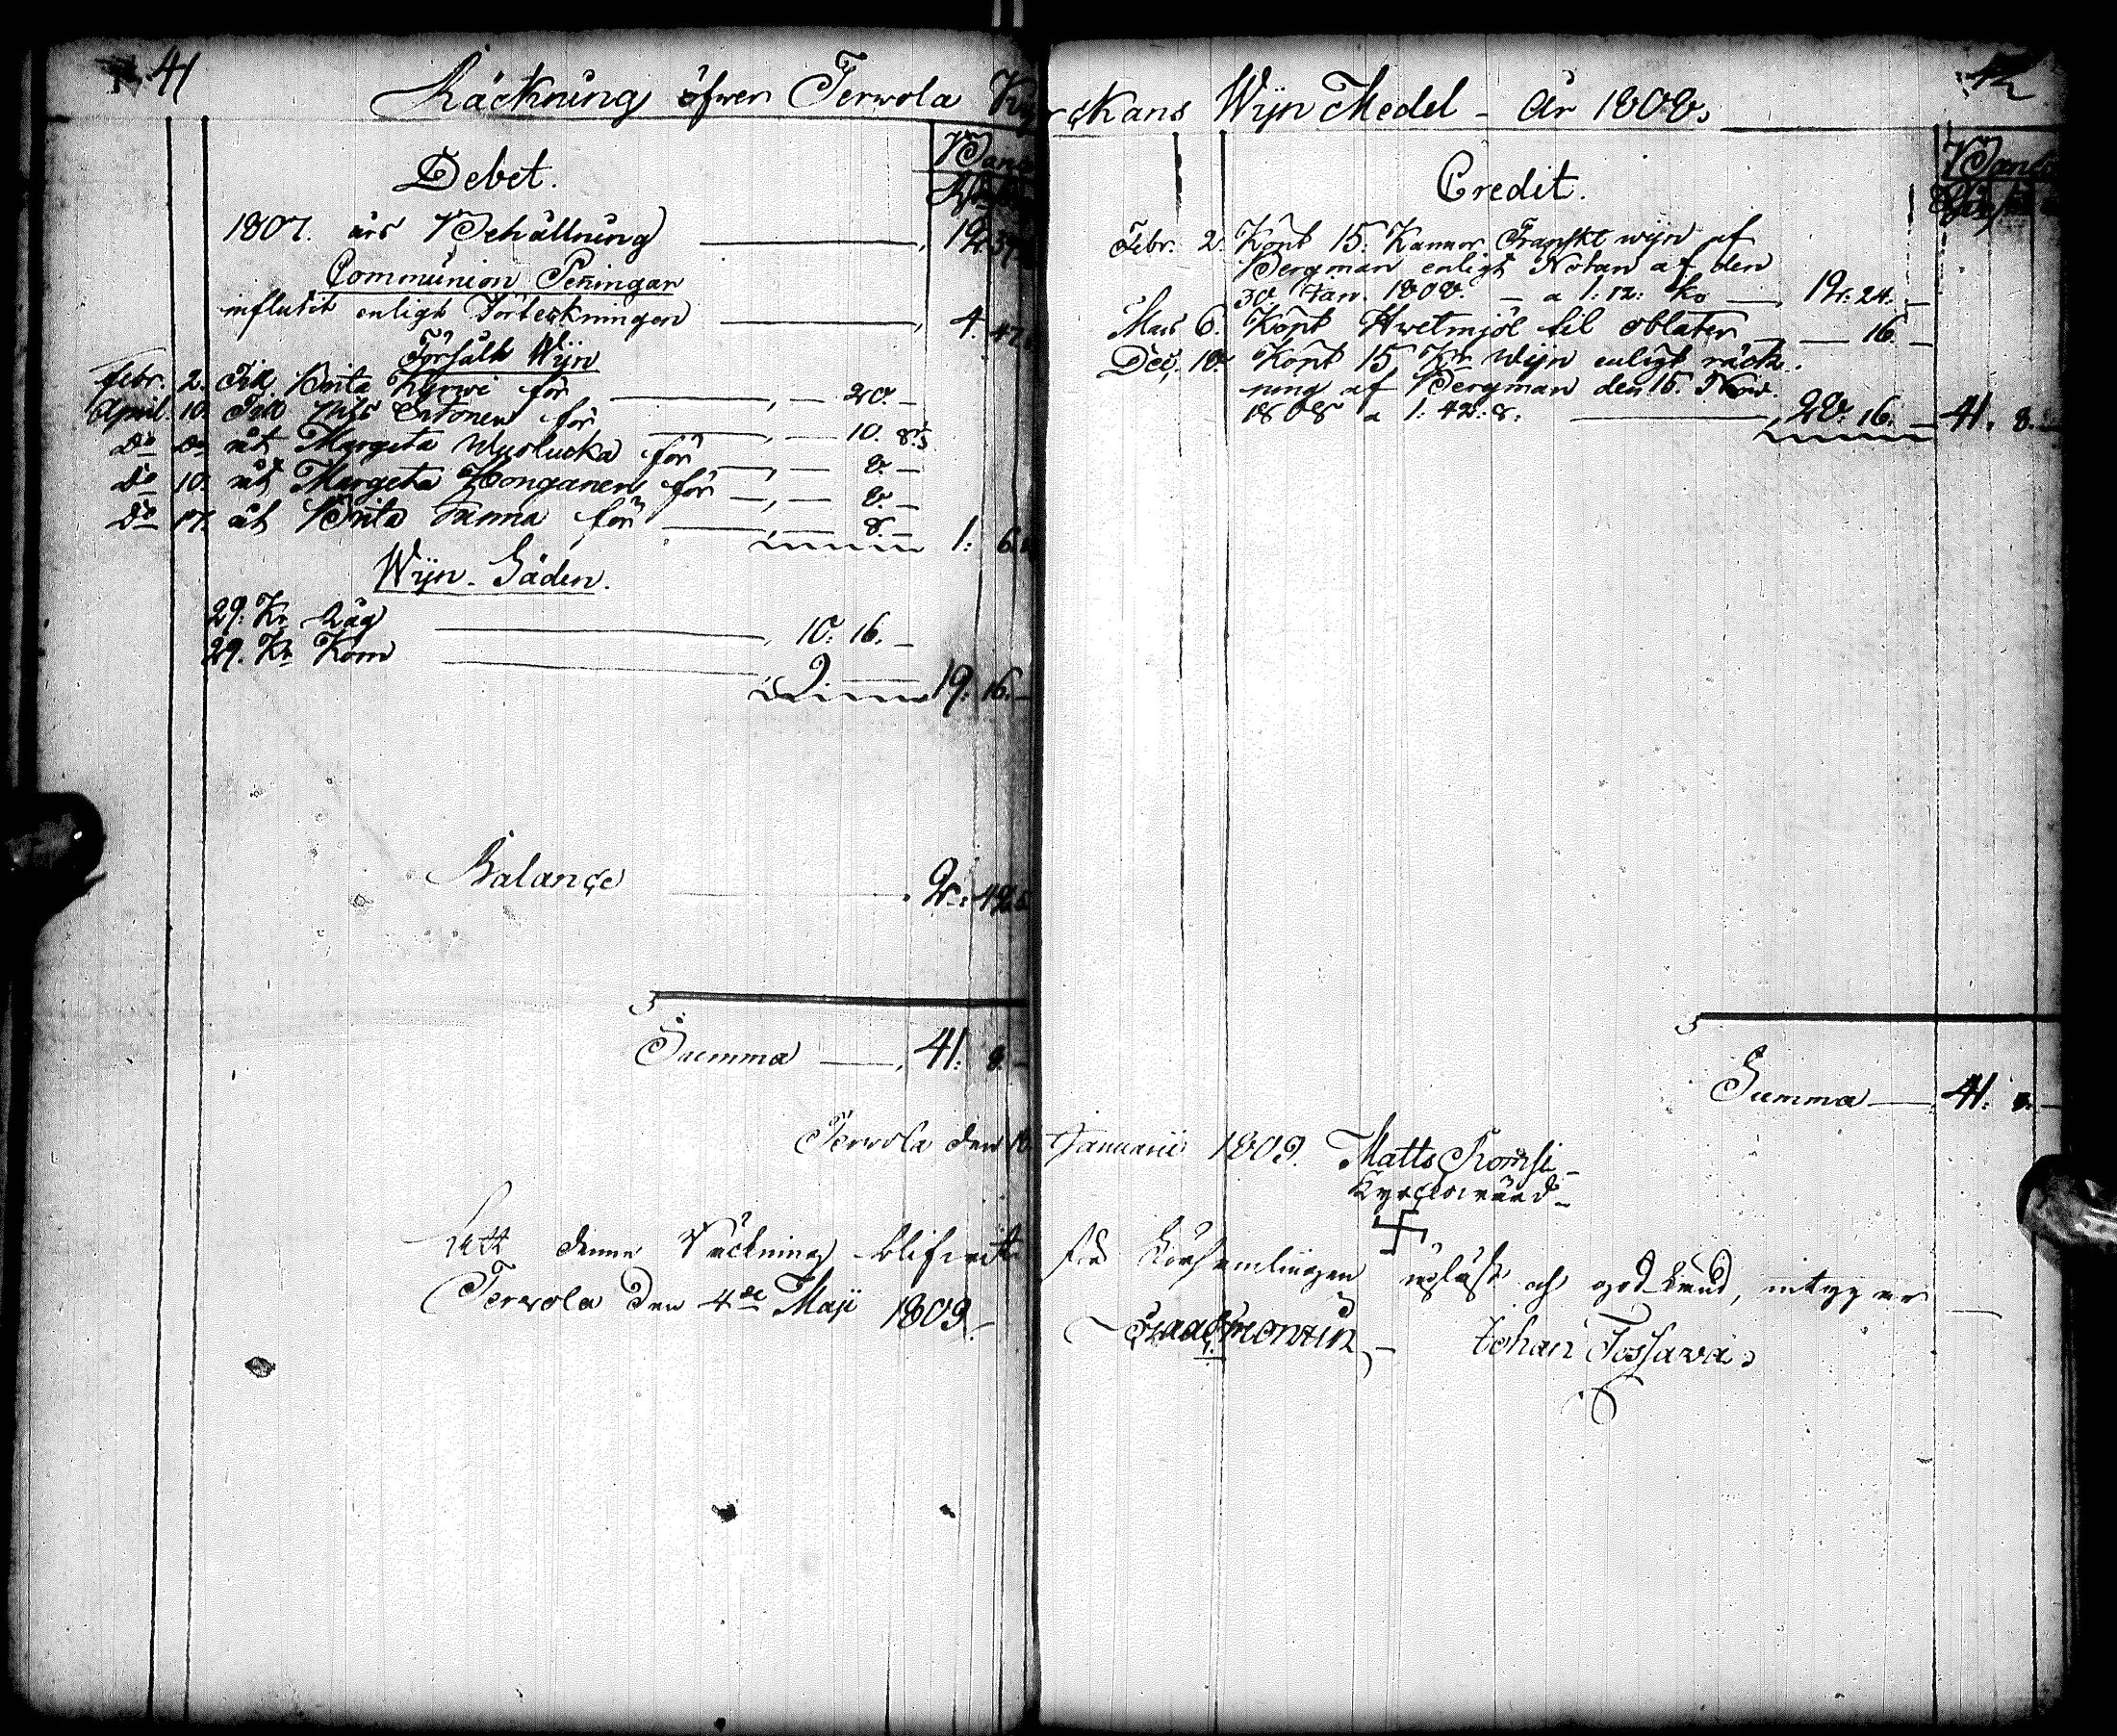 41
Räckning öfwer Terwola Kyrckans Wijn Medel - År 1808.
42
Debet.
Banco
1807. års Behållning 12. 37.
Communion Peningar
influtit enligt Förteckningen 4. 47.
Försålt Wijn
Febr. 2. Till Brita Kurwi för 20. -
April 10. Till Nils för 10. 8.
Do Do åt Margeta för 8. -
Do 10. åt Margeta Honganen för 8. -
Do 17. åt Brita Sanna för 8. - 1: 6.
Wijn-Säden.
29. Kr Råg 10: 16. -
29. Kr Korn 9. - 19: 16. -
Balance 2: 42.
Summa 41: 8. -
Credit.
Banco
Febr. 2. Köpt 15. Kannor Franskt wijn af
Bergman enligt Notan af den
30. Jan. 1808. - a 1: 12: ko 12: 24. -
Mars 6. Köpt Hwetmjöl til oblater 16. -
Dec. 10. Köpt 15 Kr Wijn enligt räck-
ning af Bergman den 15. Nov.
1808 a 1: 42: 8. 28: 16. - 41. 8. -
Summa 41: 8. -
Terwola den 16 Januarii 1809. Matts Romsi
Kyrckowärd
Att denna Räckning blifwit för Församlingen upläst och godkänd, intygar
Terwola den 4de Maji 1809.
Johan Tossava